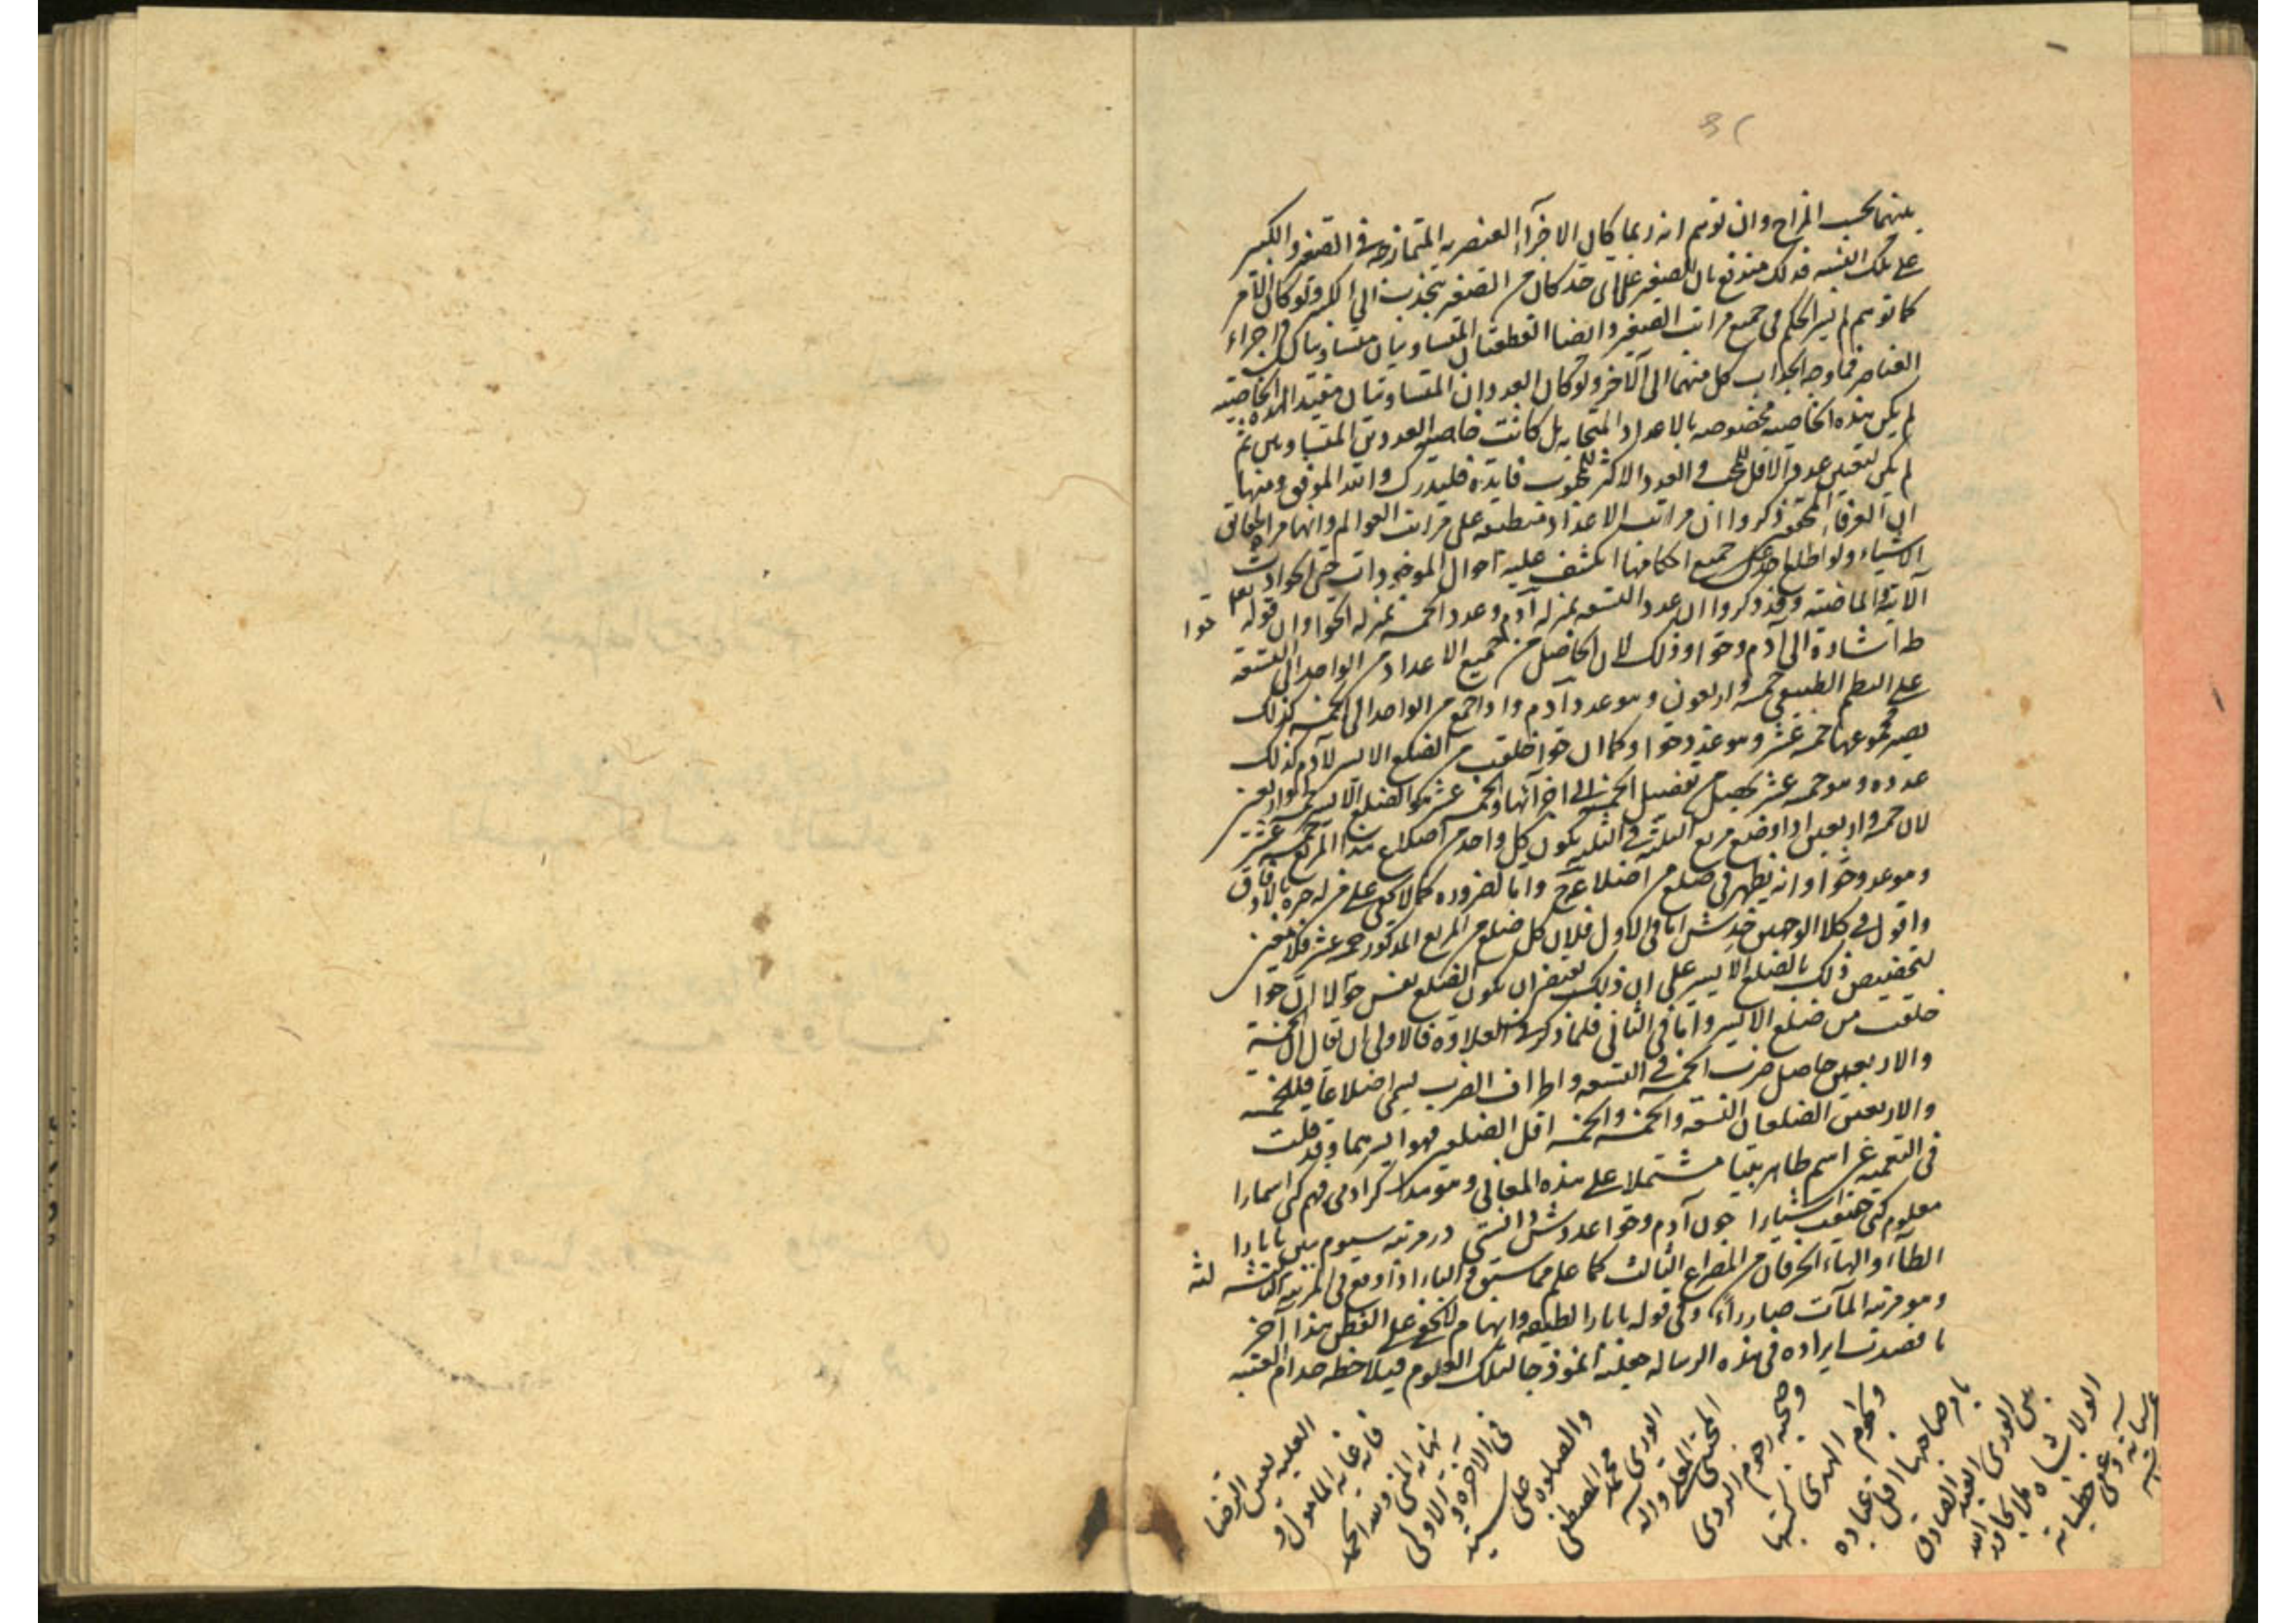 بينهما بحسب المزاج وان توهم انه ربما كان الاجزاء العنصريه المتمازجه في الصغير والكبير
على تلك النسبه فذلك مندفع بان الصغير على اي حد كان من الصغر ينجذب الى الكبير ولو كان الامر
كما توهم لم يسر الحكم في جميع مراتب الصغير وايضا القطعتان المتساويتان متساويتان في اجزاء
العناصر فما وجه انجذاب كل منهما الى الآخر ولو كان العددان المتساويان مفيدا لهذه الخاصيه
لم يكن هذه الخاصيه مخصوصه بالاعداد المتحابه بل كانت خاصه العددين المتساويين ثم
لم يكن لتعيين عدد الاقل للمحب والعدد الاكثر للمحبوب فايدة فليتدرك والله الموفق ومنها
ان العرفاء المحققين ذكروا ان مراتب الاعداد منطبقه على مراتب العوالم وانها مرآة حقائق
الاشياء ولو اطلع احد على جميع احكامها انكشف عليه احوال الموجودات حتى الحوادث
الآتيه والماضيه وقد ذكروا ان عدد التسعه بمنزله آدم وعدد الخمسه بمنزله الحوا وان قوله تعالى
حوا
طه اشارة الى آدم وحوا وذلك لان الحاصل من جميع الاعداد من الواحد الى التسعه
على النظم الطبيعي خمسه واربعون وهو عدد آدم واذا جمع من الواحد الى الخمسه كذلك
يصير مجموعها خمسه عشر وهو عدد حوا وكما ان حوا خلقت من الضلع الايسر لآدم كذلك
عدده وهو خمسه عشر يحصل من تفصيل الخمسه الى اجزائها والخمسه عشر هو الضلع الايسر لخمسه واربعين
لان خمسه واربعين اذا وضع مربع الثلثه في الثلثه يكون كل واحد من اضلاع هذا المربع خمسه عشر
وهو عدد حوا وانه يظهر في ضلع من اضلاعه وايا بالضروره كما لا يخفى على من له خبره بالاوفاق
واقول في كلا الوجهين خدش اما في الاول فلان كل ضلع من المربع المذكور خمسه عشر فلا معنى
لتخصيص ذلك بالضلع الايسر على ان ذلك يقتضي ان يكون الضلع نفس حوا لا ان حوا
خلقت من ضلع الايسر واما في الثاني فلما ذكر في العلاوه فالاولى ان يقال ان الخمسة
والاربعين حاصل ضرب الخمسه في التسعه واطراف الضرب يسمى اضلاعا فللخمسه
والاربعين الضلعان التسعه والخمسه والخمسه اقل الضلعين فهو ايسرهما وقد قلت
في التعميه عن اسم طاهر بيتا مشتملا على هذه المعاني وهو هذا كر آدمى فهم كن اسمارا
معلوم كن حقيقت اشيارا چون آدم وحوا عددش دانستى در مرتبه سيوم ببين بابارا
الطاء والهاء الحرفان من المصراع الثالث كما علم مما سبق والباء اذا وقع في المرتبة الثالثه
وهو مرتبه المآت صار راء وفي قوله بابارا لطيفه وايهام لا يخفى على الفطن هذا آخر
ما قصدت ايراده في هذه الرساله جعلته انموذجا لتلك العلوم فيلاحظه خدام العتبه
العليه بعين الرضا
فانه غايه المأمول و
نهايه المنى ولله الحمد
في الاخره والاولى
والصلوه على سيد
الورى محمد المصطفى
المجتبى المعلى وآله
وصحبه رجوم الردى
ونجوم الهدى كتبها
بامر صاحبها اقل عباده
بين الورى العبد الصادق